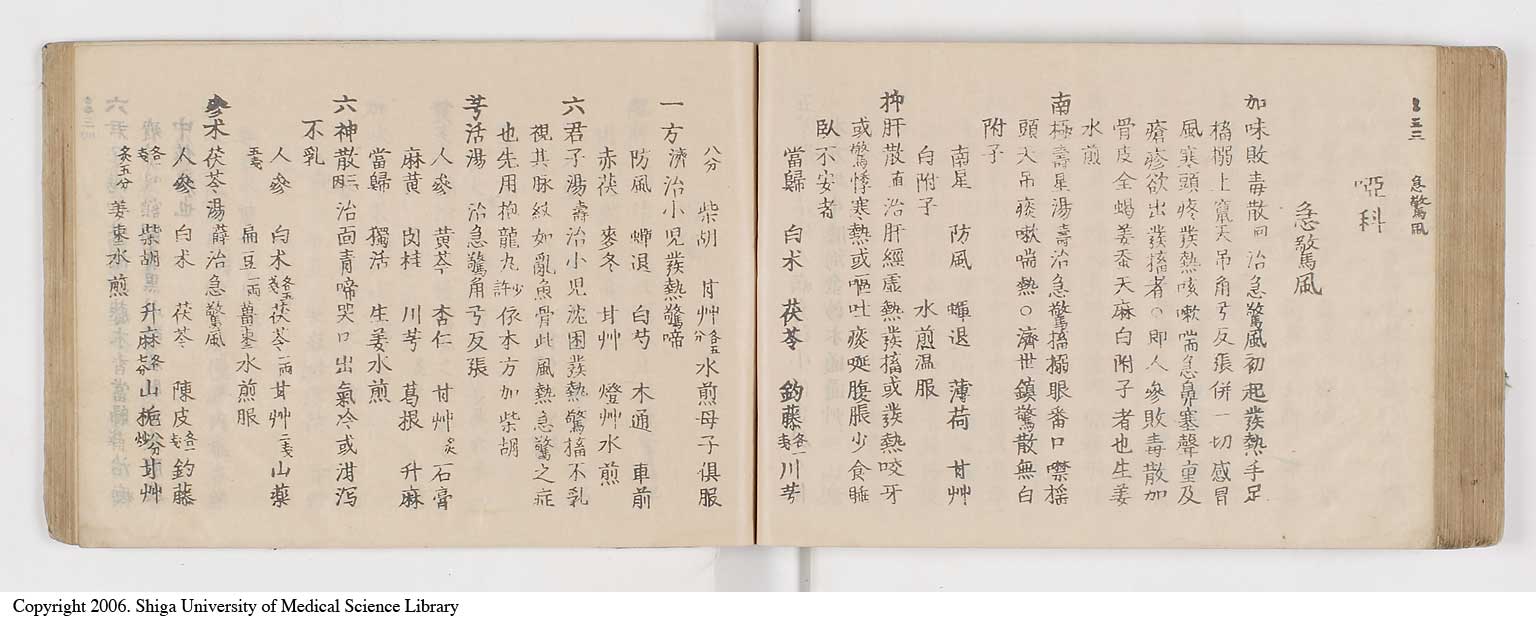 急驚風
啞科
急驚風
加味敗毒散回 治急驚風初起發熱手足
搐搦上竄天吊角弓反張併一切感冒
風寒頭疼發熱咳嗽喘急鼻塞聲重及
瘡疹欲出發搐者○即人參敗毒散加
骨皮全蝎姜蚕天麻白附子者也生姜
水煎
南極壽星湯壽治急驚搐搦眼番口噤搖
頭天吊痰嗽喘熱○濟世鎮驚散無白
附子
南星 防風 蟬退 薄荷 甘艸
白附子 水煎温服
抑肝散直治肝經虛熱發搐或發熱咬牙
或驚悸寒熱或嘔吐痰涎腹脹少食睡
臥不安者
當歸 白朮 茯苓 釣藤各一戔 川芎
八分 柴胡 甘艸各五分 水煎母子俱服
一方濟治小児發熱驚啼
防風 蟬退 白芍 木通 車前
赤茯 麥冬 甘艸 燈艸水煎
六君子湯壽治小児沈困發熱驚搐不乳
視其脉紋如亂魚骨此風熱急驚之症
也先用抱龍丸少許依本方加柴胡
芎活湯 治急驚角弓反張
人參 黃芩 杏仁 甘艸炙 石膏
麻黄 肉桂 川芎 葛根 升麻
當歸 獨活 生姜水煎
六神散 治面青啼哭口出氣冷或泄瀉
不乳
人參 白朮各五戔 茯苓一兩 甘艸二戔 山藥
五戔 扁豆一兩 薑棗水煎服
參朮茯苓湯薛治急驚風
人參 白朮 茯苓 陳皮各一戔 釣藤
柴胡 升麻 山梔 甘艸
炙五分 姜棗水煎